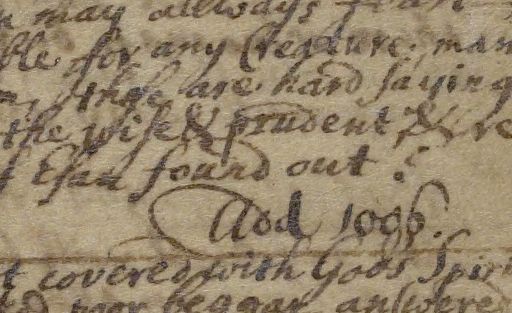 may allways
ble for any Creature. man
these are hard saying
the wise & prudent & re
Esau found out?
Add 1006.
t covered with Gods Spiri
poor beggar answered